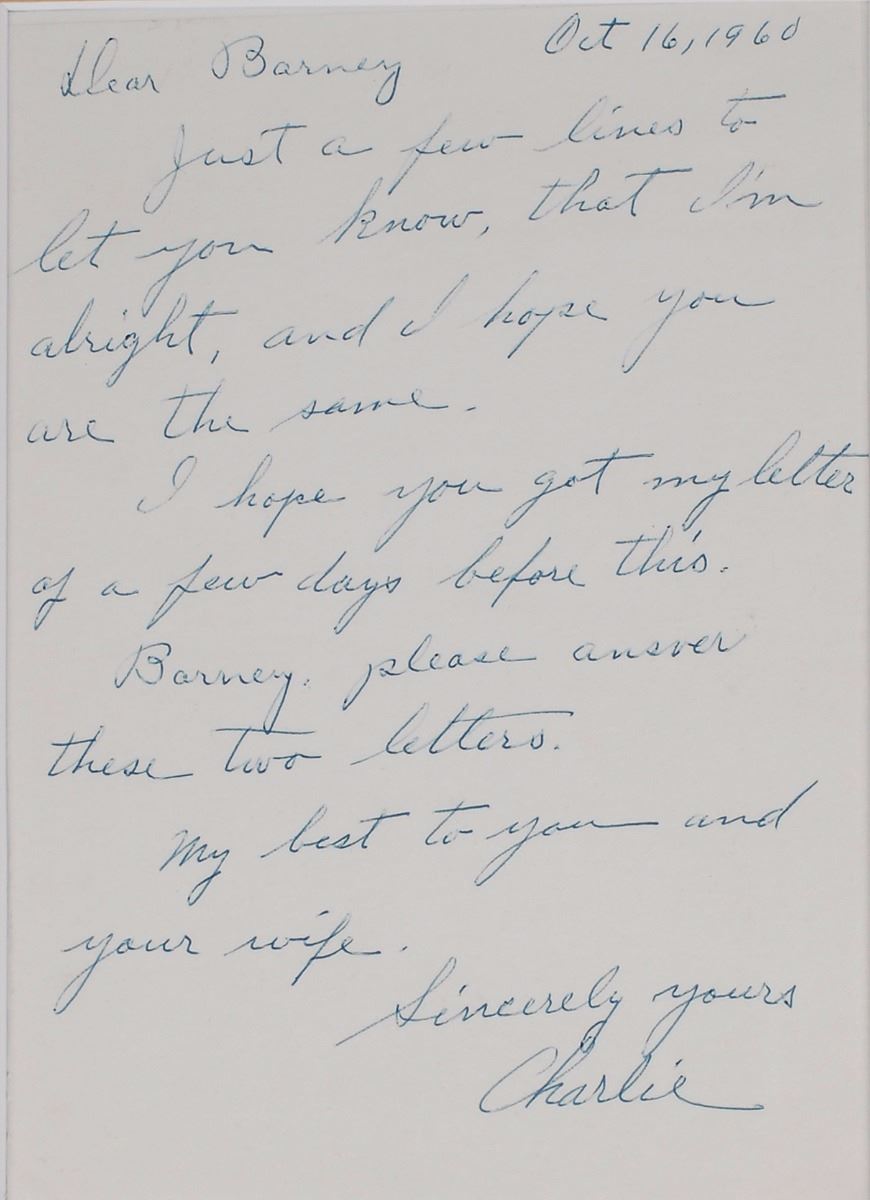 Oct 16, 1960
Dear Barney
Just a few lines to
let you know, that I'm
alright, and I hope you
are the same.
I hope you got my letter
of a few days before this.
Barney, please answer
these two letters.
My best to you and
your wife.
Sincerely yours
Charlie